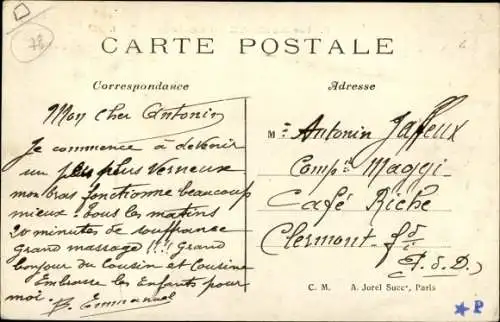 78
CARTE POSTALE
Correspondance
Adresse
Mon cher Antonin
Je commence à devenir
un plus
mon bras fonctionne beaucoup
mieux tous les matins
20 minutes de souffrance
grand massage !!!! grand
bonjour du cousin et cousine
Embrasse les Enfants pour
moi. Emmanuel
Mr Antonin Jaffeux
Compie Maggi
Café Riche
Clermont-fd
P. d. D.)
C. M. A. Jorel Succr, Paris
P